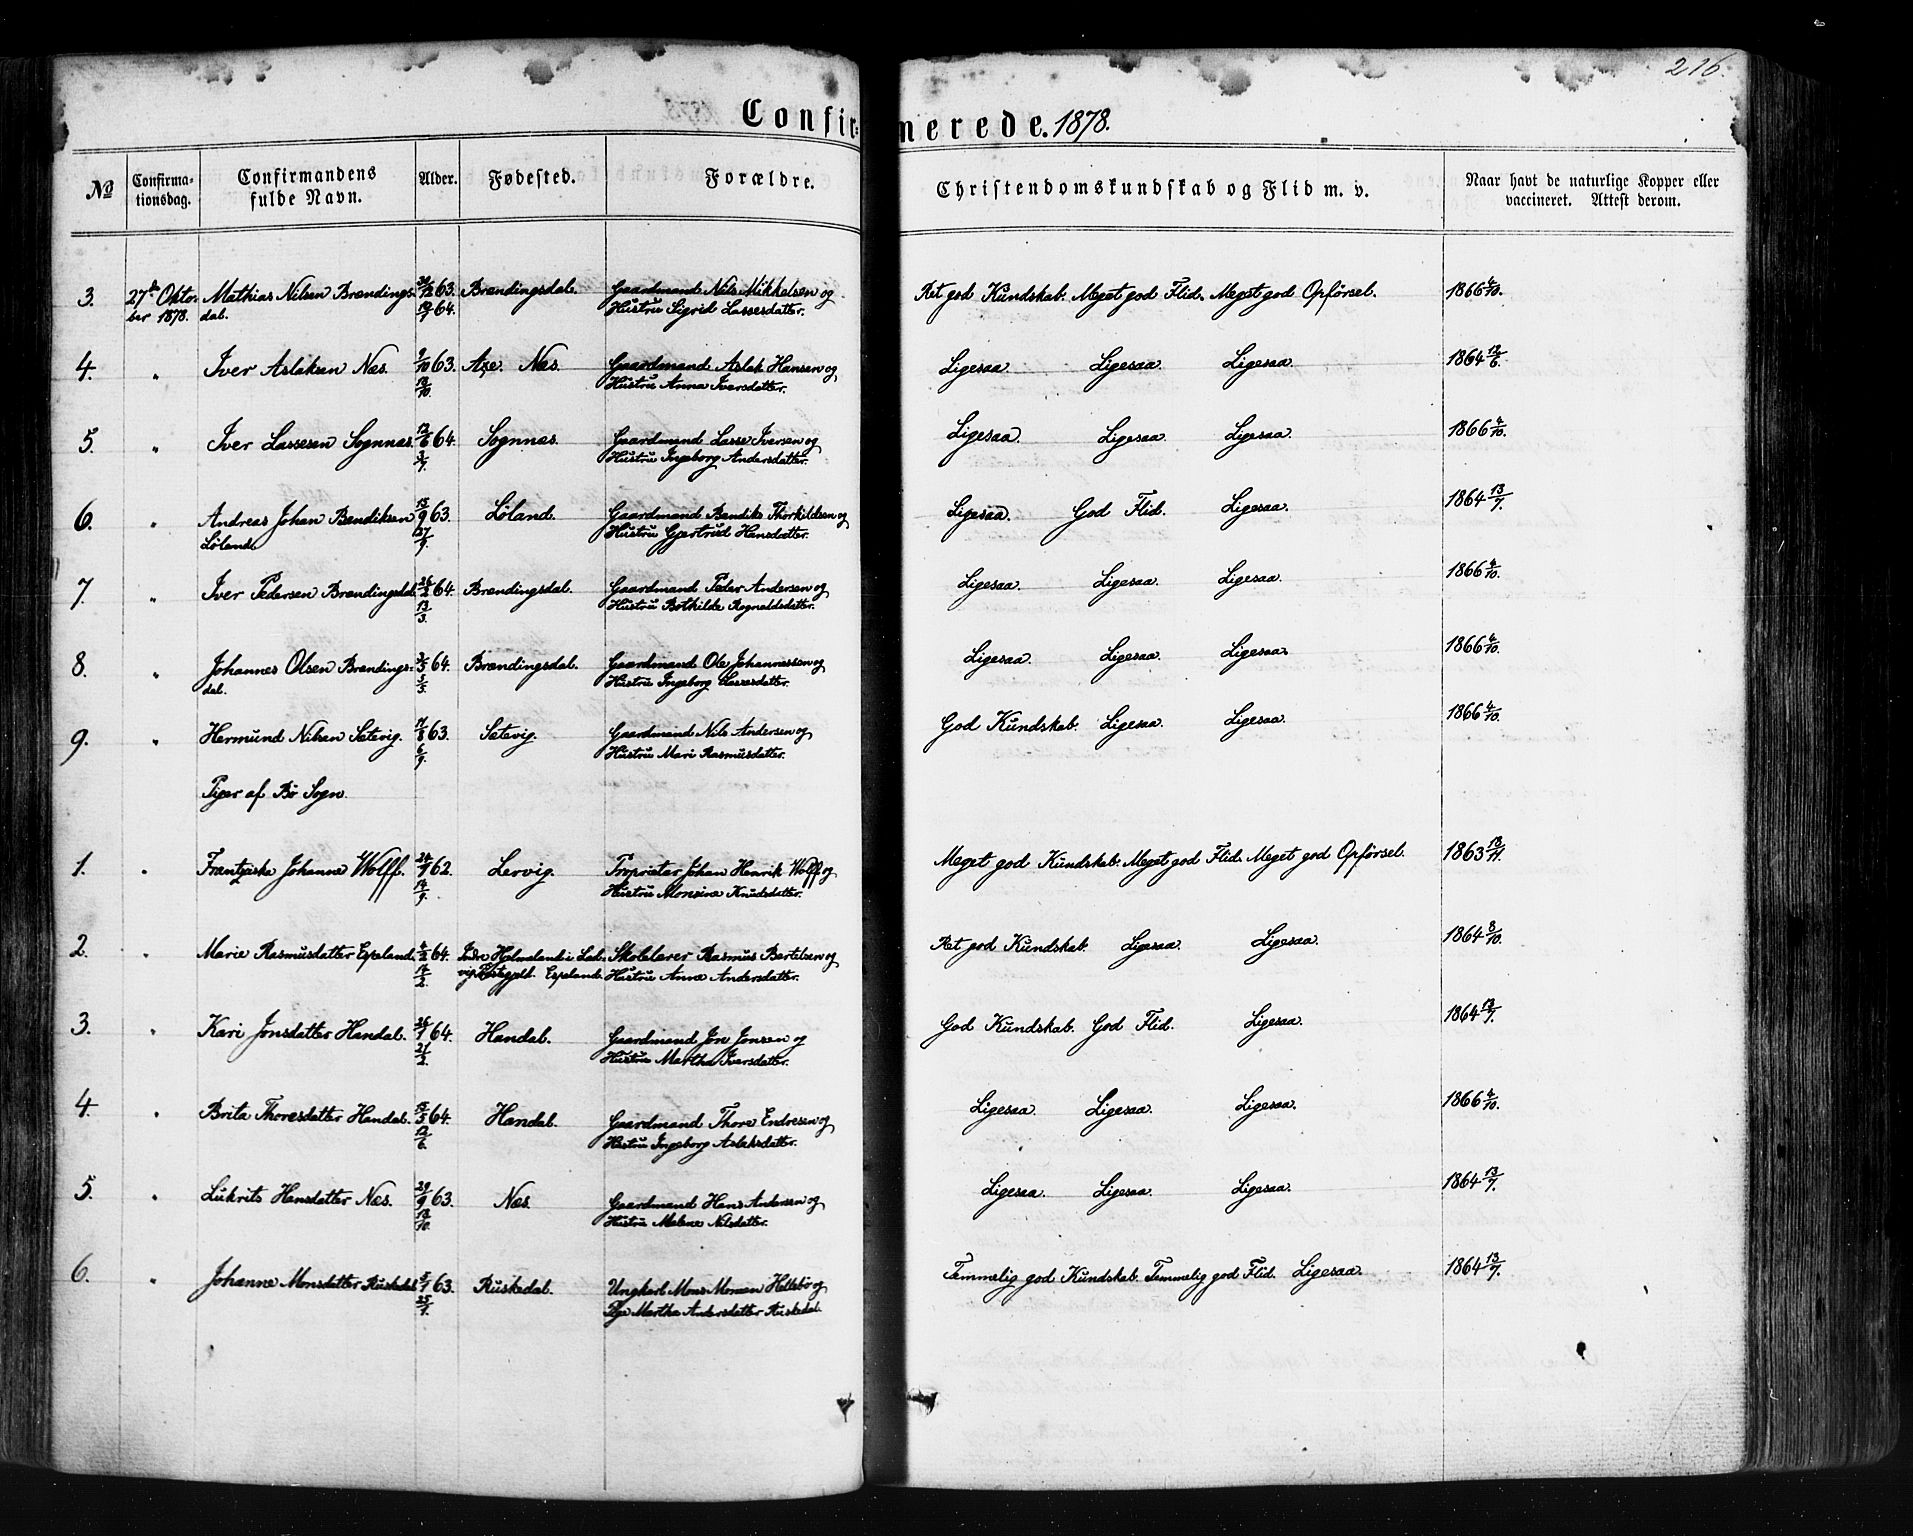 216.
Confirmerede. 1878.
No Confirmationsdag. Confirmandens fulde Navn. Alder. Fødested. Forældre. Christendomskundskab og Flid m. v. Naar havt de naturlige Kopper eller vaccineret. Attest derom.
3. 27de Okto- Mathias Nilsen Brændings- 63. Brændingsdal. Gaardmand Nils Mikkelsen og Ret god Kundskab. Meget god Flid. Meget god Opførsel. 1866 4/10.
ber 1878. dal. 64. Hustru Sigrid Lassesdatter.
4. " Iver Aslaksen Næs. 9/10 63. Næs. Gaardmand Aslak Hansen og Ligesaa. Ligesaa. Ligesaa. 1864
18/10. Hustru Anna Iversdatter.
5. " Iver Lassesen Sognnæs. 12/6 64. Sognnæs. Gaardmand Lasse Iversen og Ligesaa. Ligesaa. Ligesaa. 1866 4/10.
3/7. Hustru Ingeborg Andersdatter.
6. " Andreas Johan Bendiksen 13/9 63. Løland. Gaardmand Bendiks Thorkildsen og Ligesaa. God Flid. Ligesaa. 1864 13/7.
Løland. 27/9. Hustru Gjertrud Hansdatter.
7. " Iver Pedersen Brændingsdal. 26/2 64. Brændingsdal. Gaardmand Peder Andersen og Ligesaa. Ligesaa. Ligesaa. 1866 4/10.
13/3. Hustru Bothilde Rognaldsdatter.
8. " Johannes Olsen Brændings- 64. Brændingsdal. Gaardmand Ole Johannessen og Ligesaa. Ligesaa. Ligesaa. 1866 4/10.
dal. 5/5. Hustru Ingeborg Lassesdatter.
9. " Hermund Nilsen Setevig. 17/8 63. Setevig. Gaardmand Nils Andersen og God Kundskab. Ligesaa. Ligesaa. 1866 4/10.
6/9. Hustru Mari Rasmusdatter.
Piger af Bø Sogn.
1. " Frantziska Johanne Wolff. 62. Lervig. Proprietær Johan Henrik Wolff og Meget god Kundskab. Meget god Flid. Meget god Opførsel. 1863
14/9. Hustru Monsine Knudsdatter.
2. " Marie Rasmusdatter Espeland. 4/2 64. Indre Holmeland i Lad- Skolelærer Rasmus Bertelsen og Ret god Kundskab. Ligesaa. Ligesaa. 1864 8/10.
14/2. vigs Præstegjeld. Espeland. Hustru Anne Andersdatter.
3. " Kari Jonsdatter Handal. 26/1 64. Handal. Gaardmand Jon Jonsen og God Kundskab. God Flid. Ligesaa. 1864 13/7.
21/2. Hustru Martha Iversdatter.
4. " Brita Thoresdatter Handal. 15/5 64. Handal. Gaardmand Thore Endresen og Ligesaa. Ligesaa. Ligesaa. 1866 4/10.
12/6. Hustru Ingeborg Aslaksdatter.
5. " Lukrits Hansdatter Næs. 29/9 63. Næs. Gaardmand Hans Andersen og Ligesaa. Ligesaa. Ligesaa. 1864 13/7.
18/10. Hustru Malene Nilsdatter.
6. " Johanne Monsdatter Ruskedal. 5/1 63. Ruskedal. Ungkarl Mons Monsen Hellebø og Temmelig god Kundskab. Temmelig god Flid. Ligesaa. 1864 13/7.
25/1. Pige Martha Andersdatter Ruskedal.